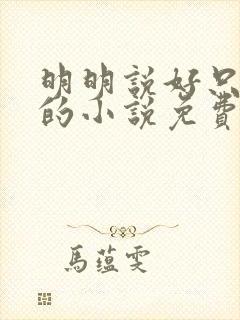 明明說好只
的小說免費
馬蘊雯